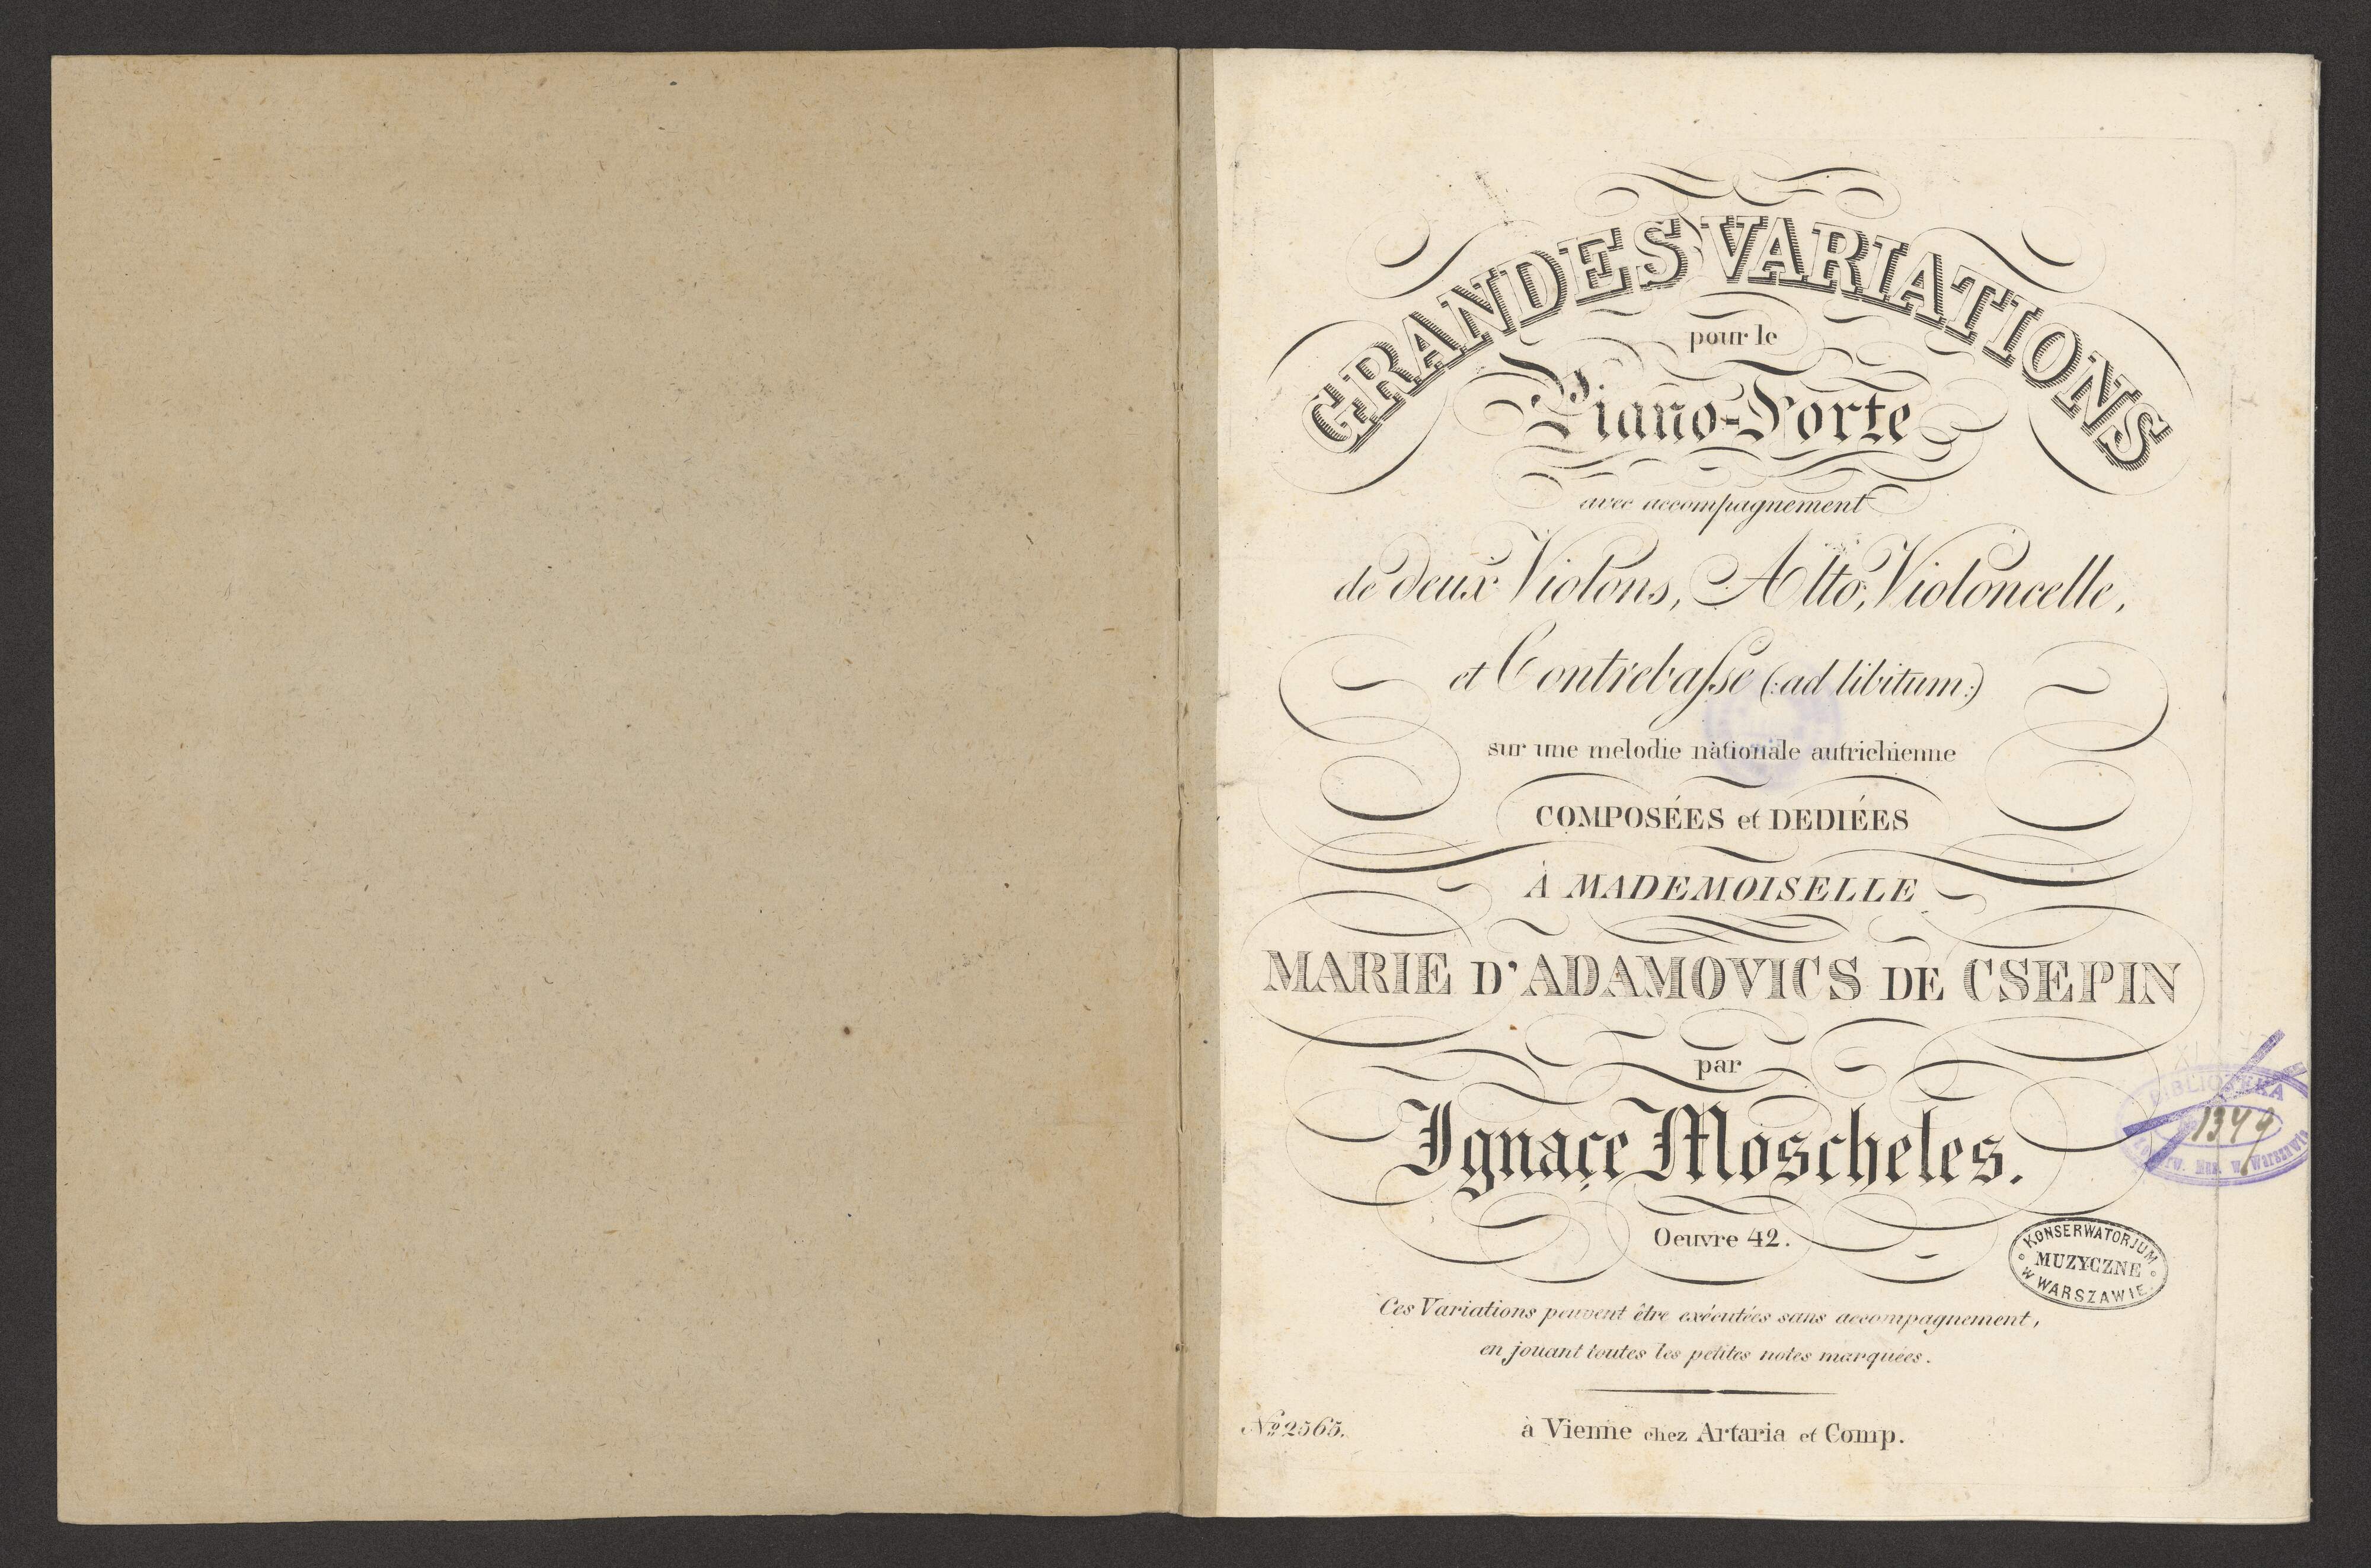 GRANDES VARIATIONS
pour le
Piano-Forte
avec accompagnement
de deux Violons, Alto, Violoncelle,
et Contrebaſse (: ad libitum :)
sur une melodie nationale autrichienne
COMPOSÉES et DEDIÉES
À MADEMOISELLE
MARIE D'ADAMOVICS DE CSEPIN
par
Ignaçe Moscheles.
Oeuvre 42.
BIBLIOTEKA
1349
W Warszawie
KONSERWATORJUM
MUZYCZNE
W WARSZAWIE
Ces Variations peuvent être exécutées sans accompagnement,
en jouant toutes les petites notes marquées.
No 2565.
à Vienne chez Artaria et Comp.